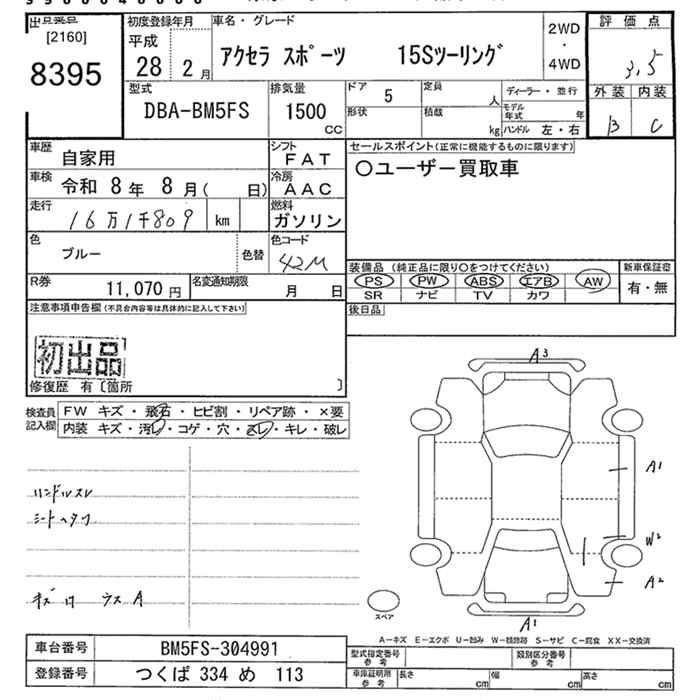 出品番号 初度登録年月 車名・グレード 評価点
[2160] 平成 アクセラ スポーツ 15Sツーリング 2WD・4WD
8395 28 2月 3.5
型式 排気量 ドア 5 定員 人 ディーラー・並行 外装 内装
DBA-BM5FS 1500 cc 形状 積載 kg モデル年式 年 ハンドル 左・右 B C
車歴 自家用 シフト FAT セールスポイント(正常に機能するものに限ります)
車検 令和 8年 8月( 日) 冷房 AAC 〇ユーザー買取車
走行 16万1千809 km 燃料 ガソリン
色 ブルー 色替 色コード 42M
装備品(純正品に限り〇をつけてください) 新車保証書
R券 11,070円 名変通知期限 月 日 PS PW ABS エアB AW 有・無
SR ナビ TV カワ
注意事項申告欄(不具合内容等は具体的に記入して下さい) 後日品
初出品
修復歴 有〔箇所 〕
A3
検査員記入欄 FW キズ・飛石・ヒビ割・リペア跡・×要
内装 キズ・汚れ・コゲ・穴・スレ・キレ・破レ
A1
ハンドルスレ
シートヘタリ
W2
A2
キズ凹 ウス A
スペア
A1
A-キズ E-エクボ U-凹み W-補修跡 S-サビ C-腐食 XX-交換済
車台番号 BM5FS-304991 型式指定番号 参考 類別区分番号 参考
登録番号 つくば 334 め 113 車庫証明用 参考 長さ cm 幅 cm 高さ cm